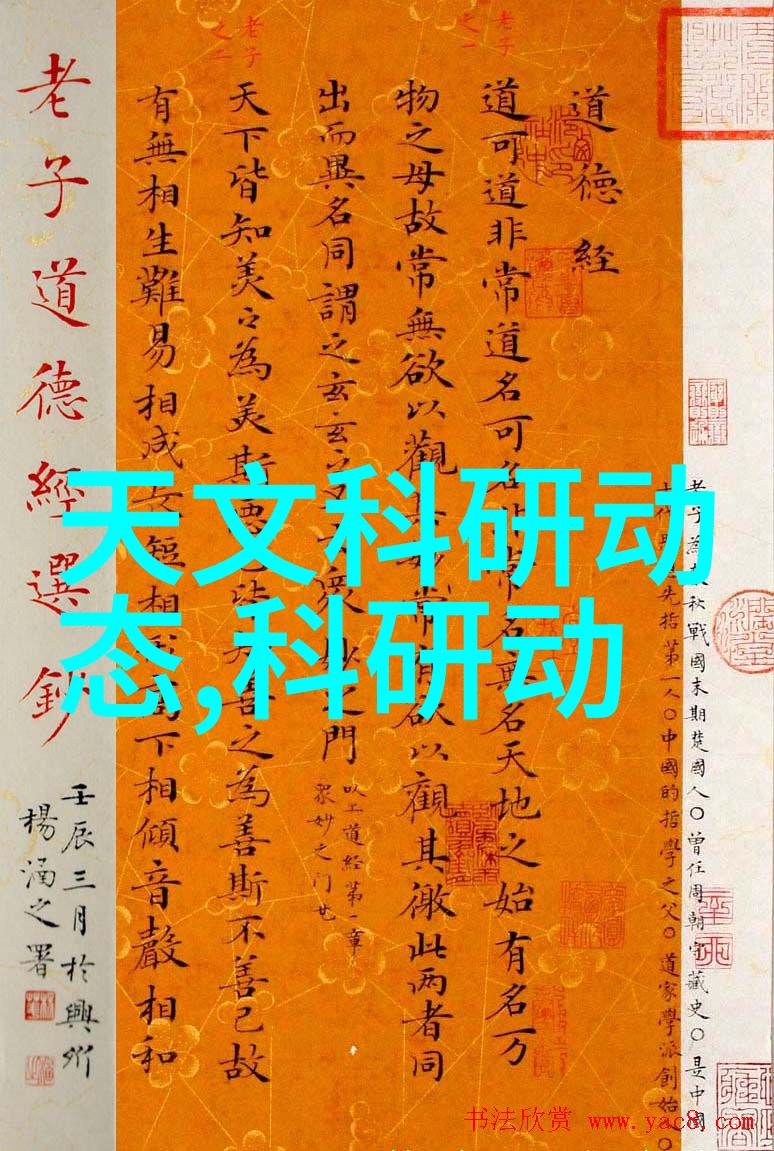 道德经
道可道非常道名可名非常名無名天地之始有名万
物之母故常無欲以觀其妙常有欲以觀其徼此两者同
出而異名同謂之玄玄之又玄众妙之門
以上道经第一章
眾妙之门也
天下皆知美之為美斯惡已皆知善之為善斯不善已故
有無相生難易相成長短相形高下相傾音聲相和
老子
之一
老子
之二
老子道德經選鈔
壬辰三月於興化
楊涵之署
老子為春秋戰國末期楚國人○曾任周朝守藏史○是中國
先指第一人○中國的哲學之父○道家學派創始人○
天文科研动
态,科研动
书法欣赏 www.yac8.com